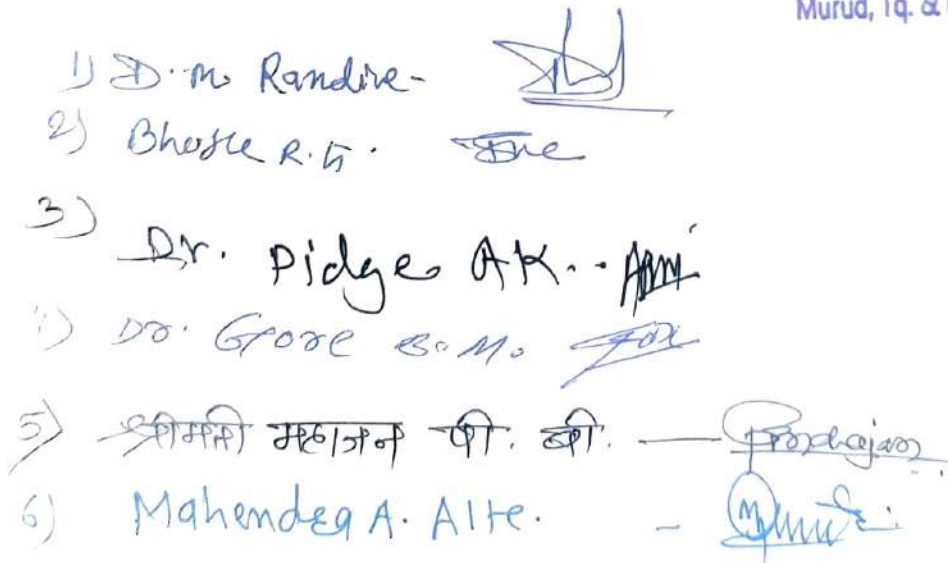 Murud, Tq. &
1) D.M. Randive-
2) Bhosle R.G.
3) Dr. Pidge AK.
4) Dr. Gore S.M.
5) श्रीमती महाजन पी. बी. —
6) Mahendra A. Alte. -